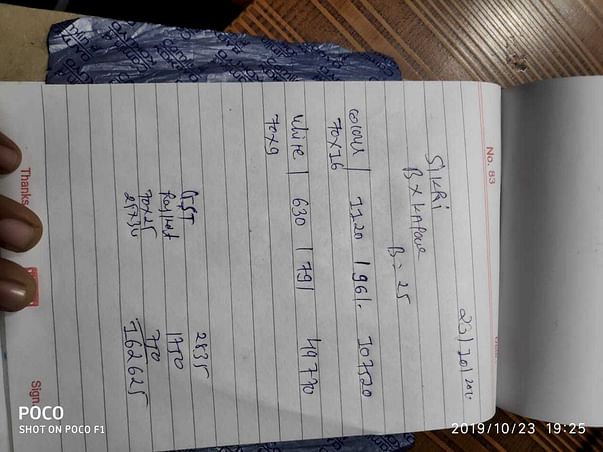 No. 83
23/10/20
SIKRI
B X
B = 25
colour | 1120 | 96/. 107520
70x16
white | 630 | 79/ 49770
70x9
GST 2835
1750
70x25 750
25x30 162625
Thanks
Sign.
POCO
SHOT ON POCO F1
2019/10/23 19:25